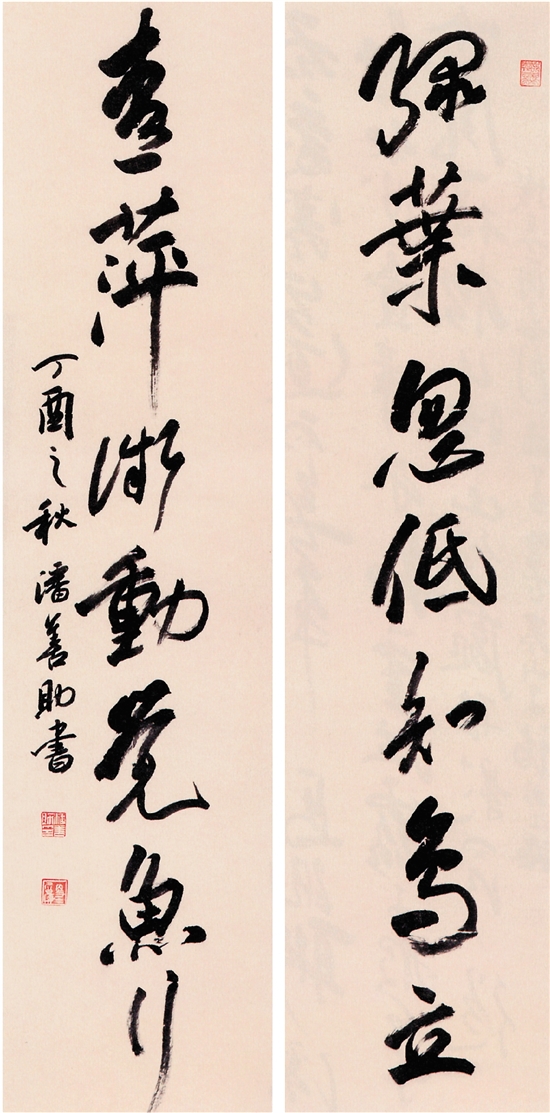 綠葉忽低知鳥立
青萍微動覺魚行
丁酉之秋潘善助書